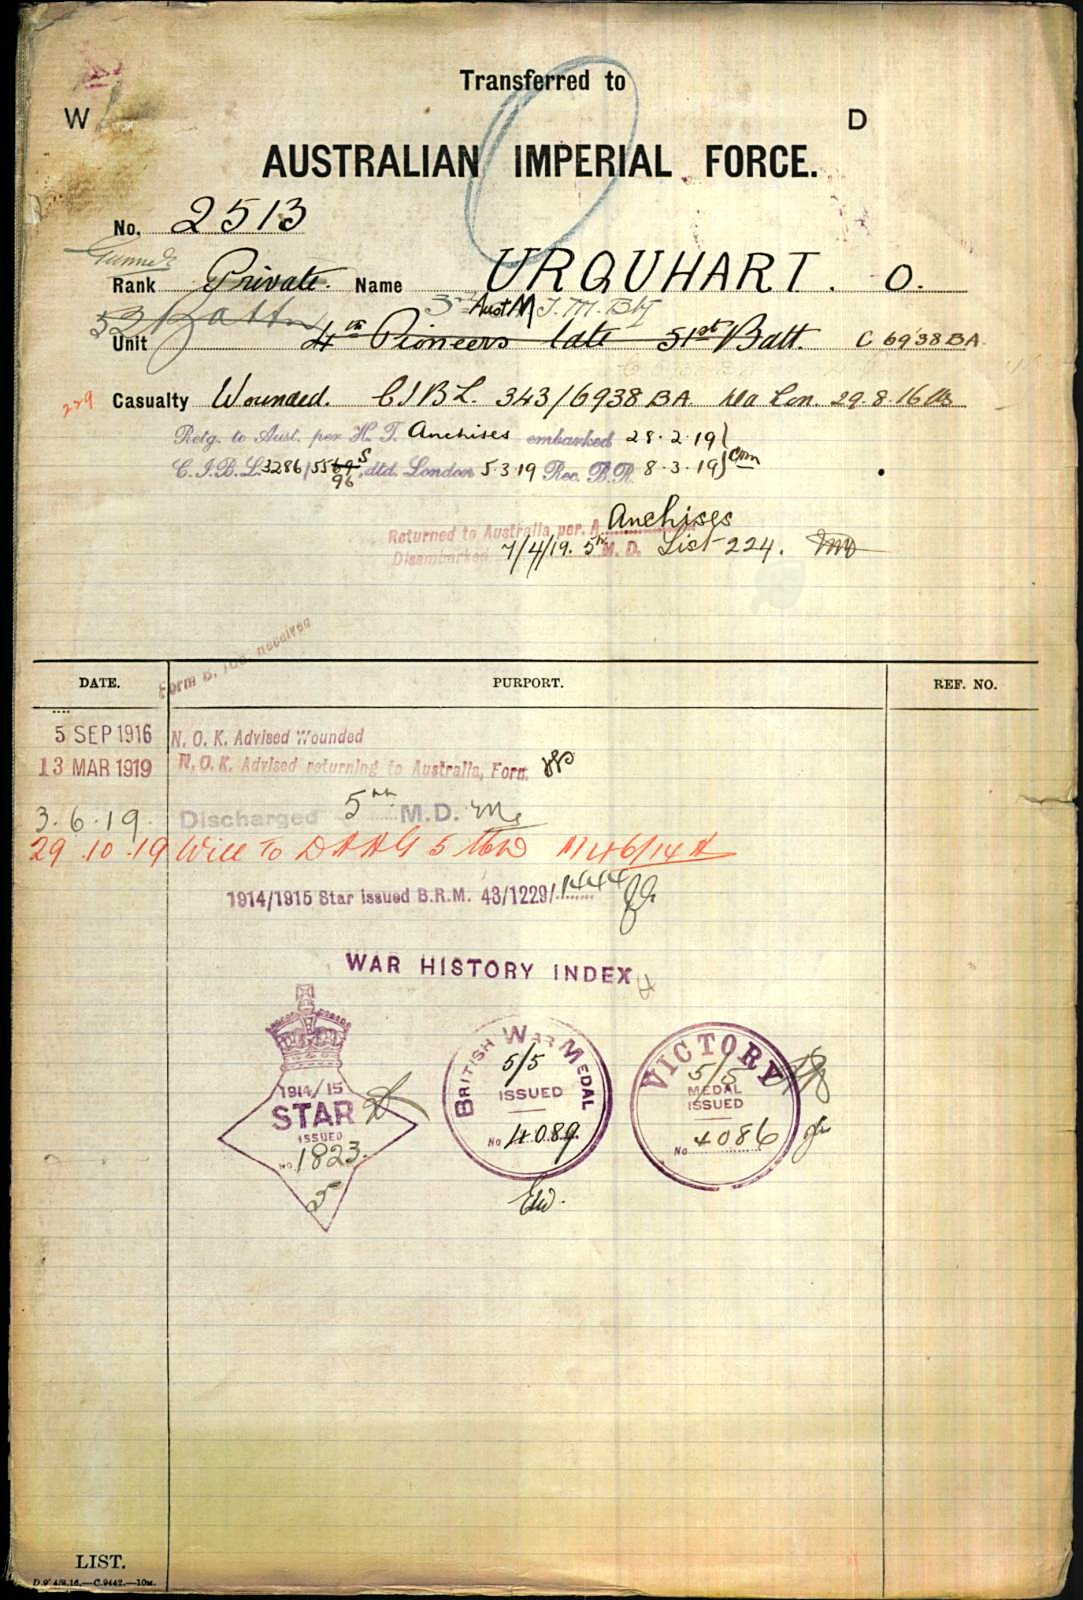 Transferred to
W D
AUSTRALIAN IMPERIAL FORCE.
No. 2513
Gunner
Rank Private. Name URQUHART. O.
3rd Aust M T. M. Bty
53 Battn
Unit 4th Pioneers late 51st Batt. C 6938 BA
229 Casualty Wounded. C I B L. 343/6938 BA Lon. 29.8.16
Retg. to Aust. per H. T. Anchises embarked 28.2.19
C. I. B. L. 3286/5569 S dtd. London 5.3.19 Rec. B.R. 8.3.19
96
Returned to Australia per. Anchises
Disembarked 7/4/19. 5th M. D. List 224.
Form B. received
DATE. PURPORT. REF. NO.
5 SEP 1916 N. O. K. Advised Wounded
13 MAR 1919 N. O. K. Advised returning to Australia, Form.
3.6.19. Discharged 5th M.D.
29.10.19 Will to D A A G 5 MD
1914/1915 Star issued B.R.M. 43/1229/1444
WAR HISTORY INDEX
1914/15
STAR
ISSUED
No 1823.
5
BRITISH WAR MEDAL
5/5
ISSUED
No 4089
VICTORY
5/5
MEDAL
ISSUED
No 4086
LIST.